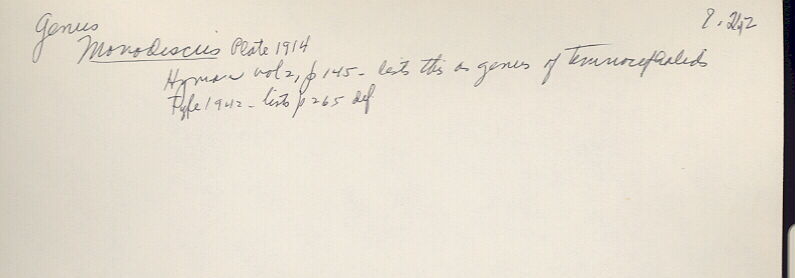 Genus
Monodiscus Plate 1914
Hyman vol 2, p 145 - lists this as genus of Temnocephalids
Fyfe 1942 - lists p 265 def